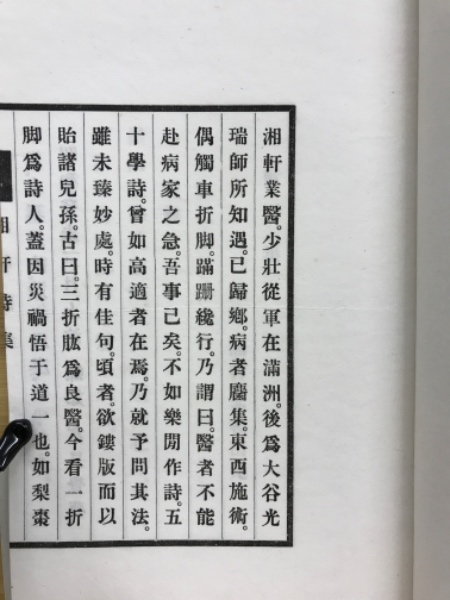 湘軒業醫。少壯從軍在滿洲。後爲大谷光
瑞師所知遇。已歸鄕。病者麕集。東西施術。
偶觸車折脚。蹣跚纔行。乃謂曰。醫者不能
赴病家之急。吾事已矣。不如樂閒作詩。五
十學詩。曾如高適者在焉。乃就予問其法。
雖未臻妙處。時有佳句。頃者。欲鏤版而以
貽諸兒孫。古曰。三折肱爲良醫。今看一折
脚爲詩人。蓋因災禍悟于道一也。如梨棗
湘軒詩集